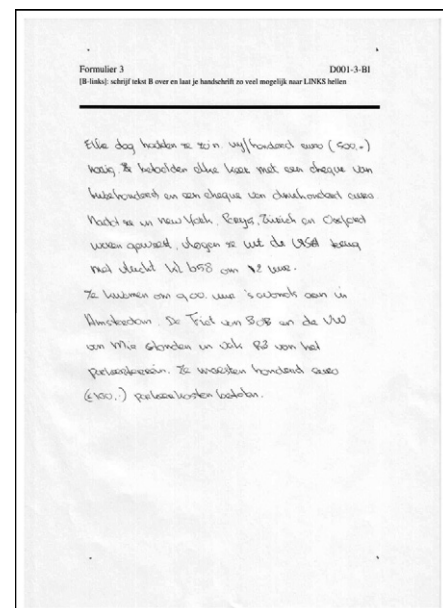 Formulier 3 D001-3-BI
[B-links]: schrijf tekst B over en laat je handschrift zo veel mogelijk naar LINKS hellen
Elke dag hadden ze zo'n vijfhonderd euro (500,-)
nodig. Ze betaalden elke keer met een cheque van
tweehonderd en een cheque van driehonderd euro
Nadat ze in new York, Parijs, Zürich en Oxford
waren geweest, vlogen ze uit de USA terug
met vlucht KL 658 om 12 uur.
Ze kwamen om 9.00 uur 's avonds aan in
Amsterdam. De Fiat van BOB en de VW
van Mia stonden in vak R3 van het
parkeerterrein. Ze moesten honderd euro
(€100,-) parkeerkosten betalen.